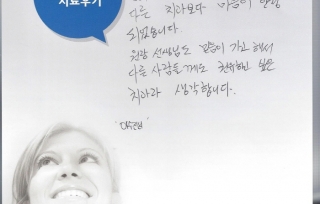 치료후기
다른 치과보다 마음이 안정
되었습니다.
원장 선생님도 믿음이 가고 해서
다른 사람들께도 추천하고 싶은
치과라 생각합니다.